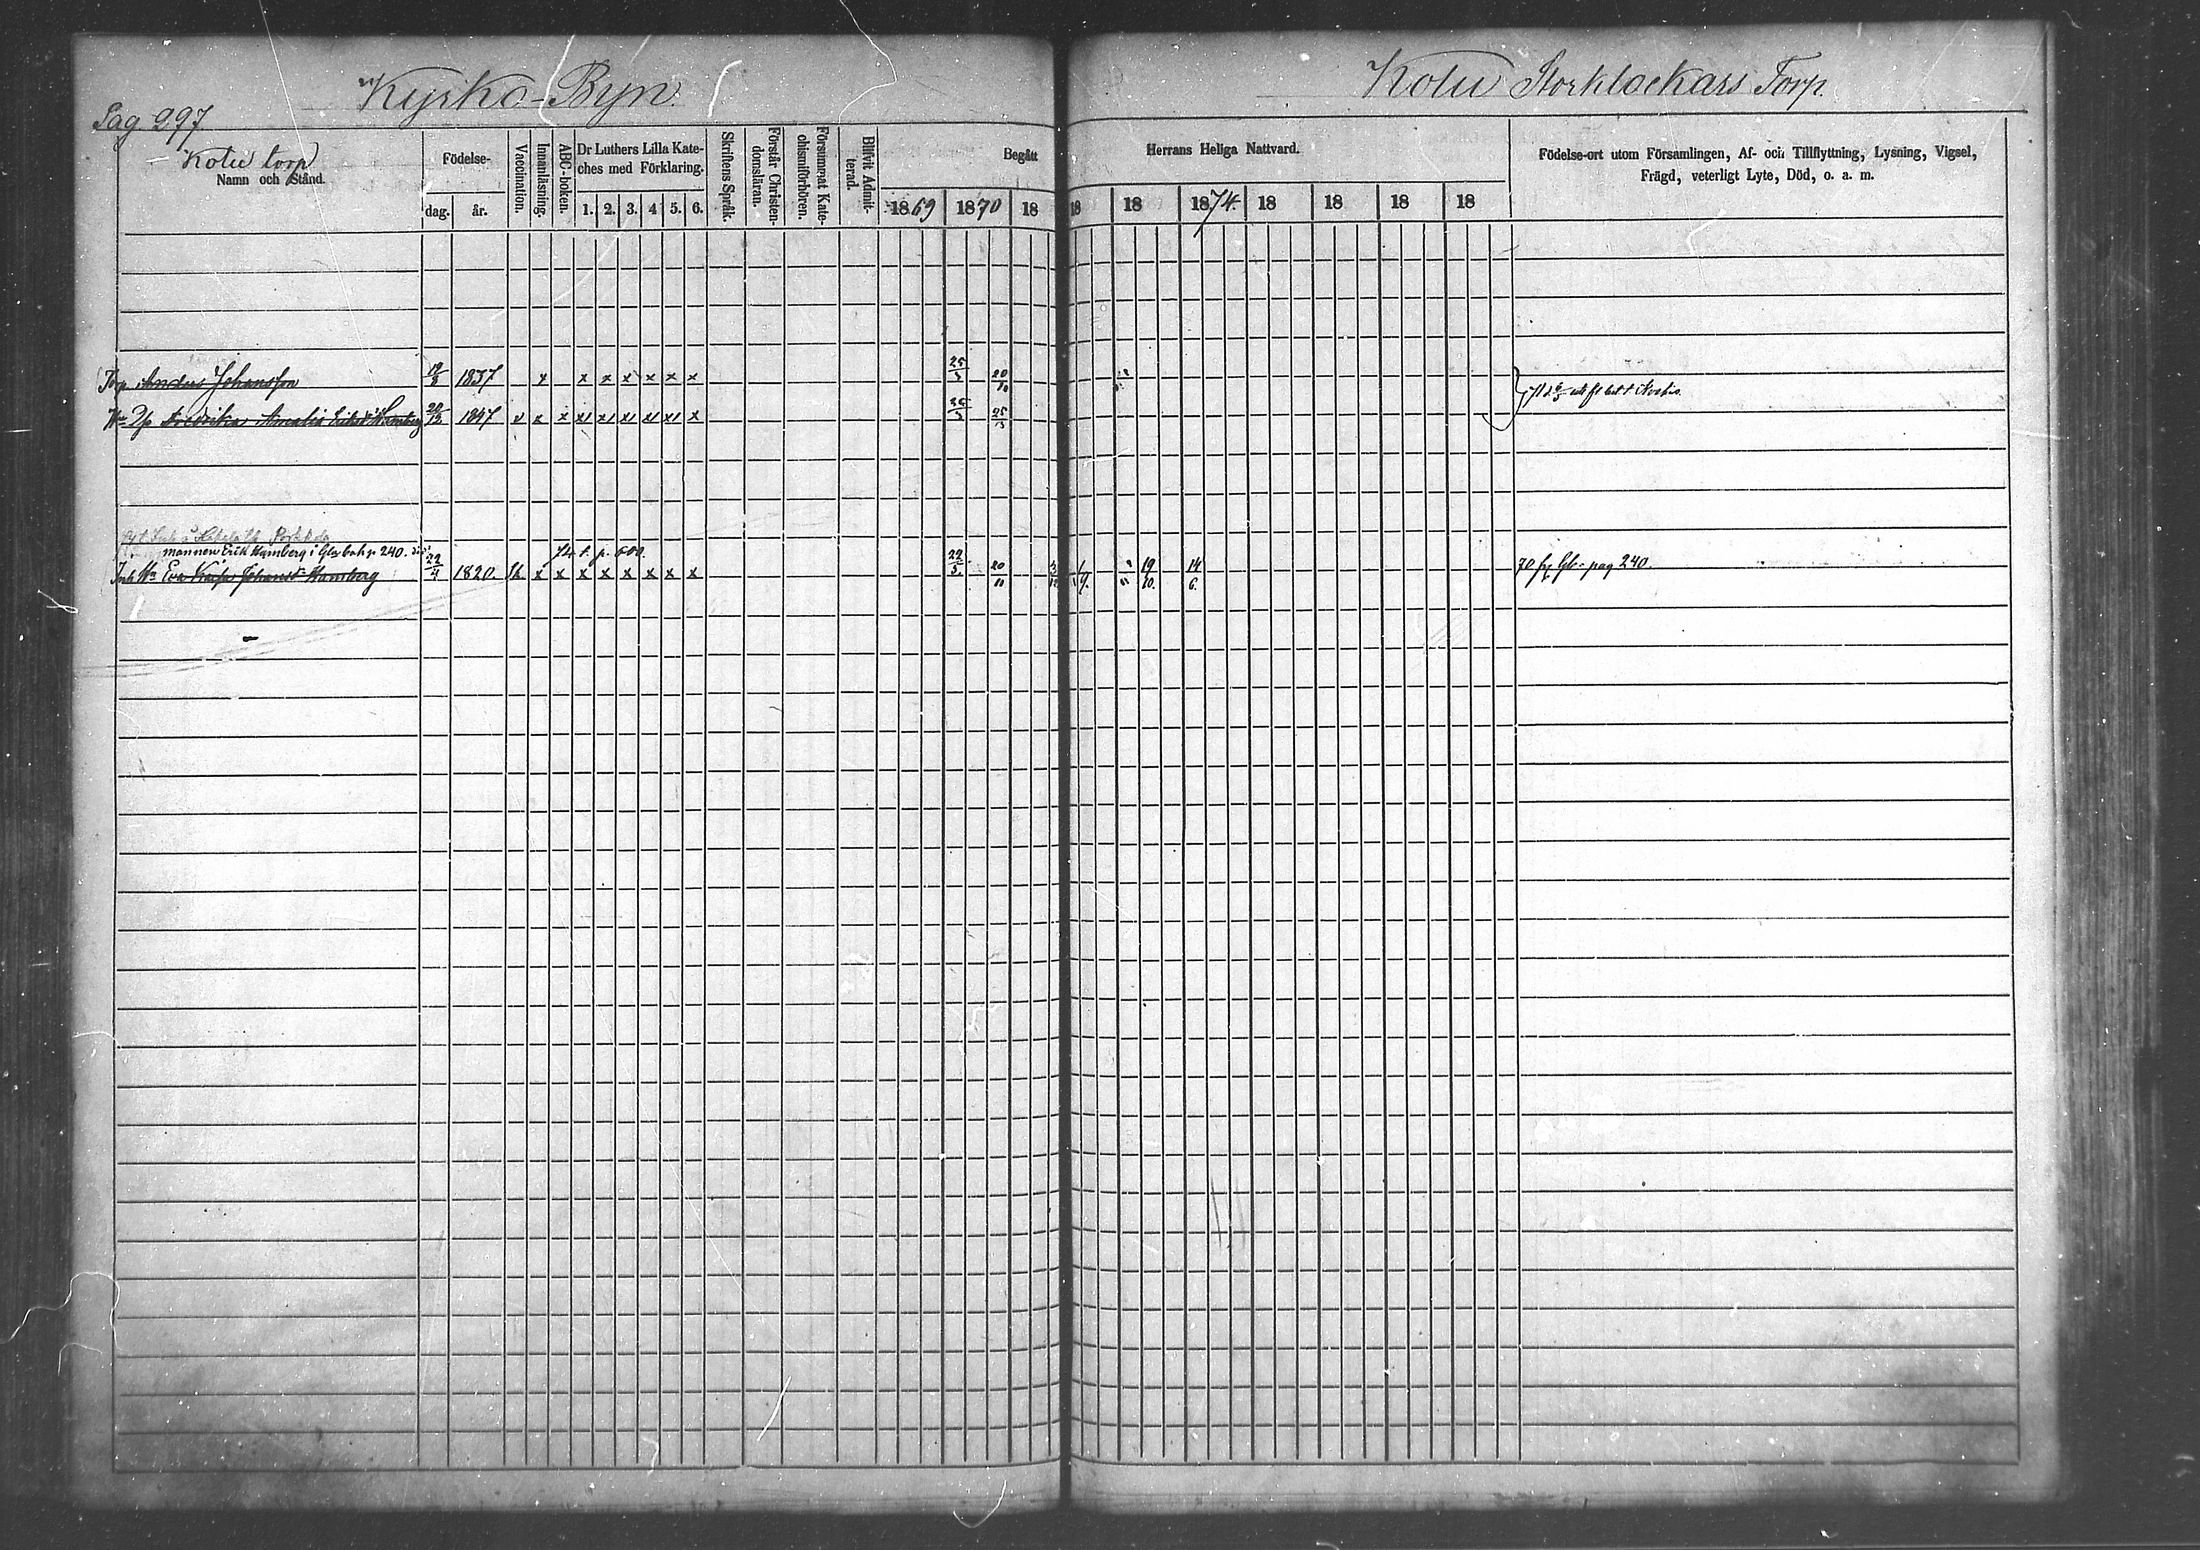 Kyrko-Byn
Kotu Storklockars Torp.
Pag 297
Kotu torp
Namn och Stånd.
Födelse-
dag. år.
Vaccination.
Innanläsning.
ABC-boken.
Dr Luthers Lilla Kate-
ches med Förklaring.
1. 2. 3. 4 5. 6.
Skriftens Språk.
Förstår Christen-
domsläran.
Försummat Kate-
chismiförhören.
Blifvit Admit-
terad.
Begått
Herrans Heliga Nattvard.
1869 1870 18
18 18 1874. 18 18 18 18
Födelse-ort utom Församlingen, Af- och Tillflyttning, Lysning, Vigsel,
Frägd, veterligt Lyte, Död, o. a. m.
Torp. Anders Johansson 19/3 1837 x x x x x x x 25/3 20/10
Hu Fredrika Amalia Hamberg 1847 v x x x1 x1 x1 x1 x1 x 25/3
mannen Erik Hamberg i Gbr bok p 240.
74 t. p. 600.
Inh Hu Eva Kaisa Johansd. Hamberg 22/4 1820 x x x x x x x x 22/5 20/11 19/10. 14/6. 70 fr Gb. pag 240.